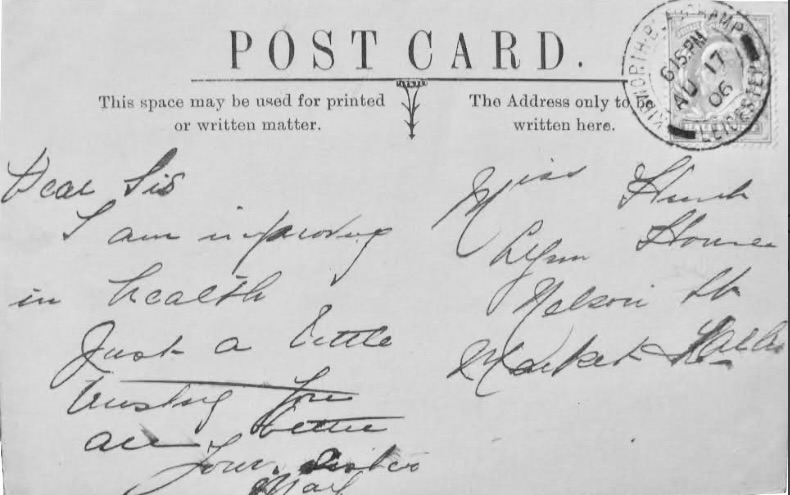 POST CARD.
This space may be used for printed
or written matter.
The Address only to be
written here.
KIBWORTH BEAUCHAMP
6 15 PM
AU 17
06
LEICESTER
Dear Sis
I am improving
in health
Just a little
trusting you
are better
Your Sister
May
Miss
Lynn House
Nelson St
Market